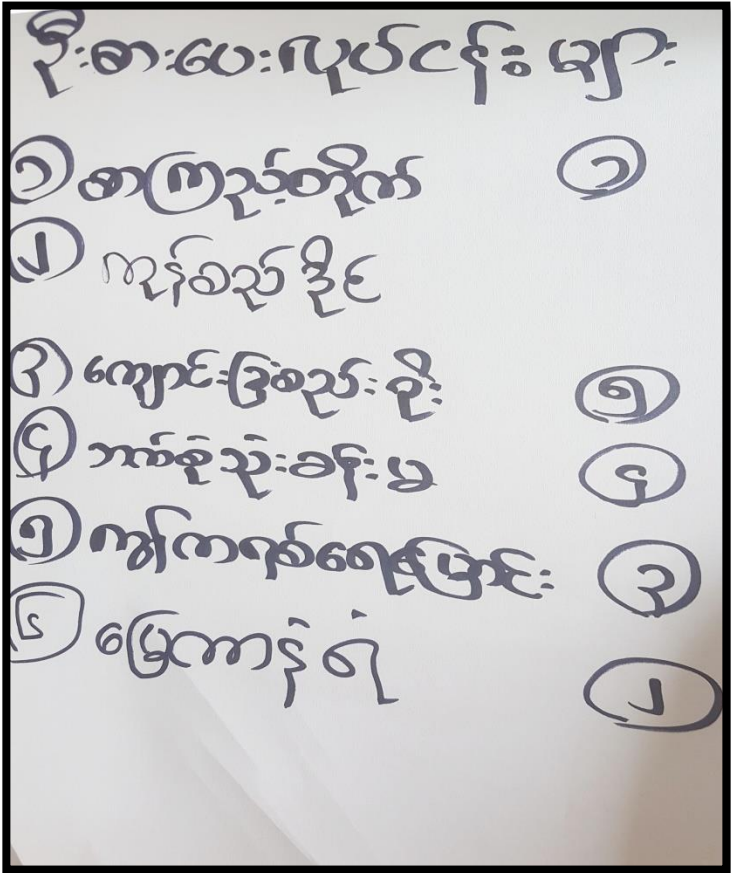 ဦးစားပေးလုပ်ငန်းများ
၁ စာကြည့်တိုက် ၁
၂ ကုန်စည်ဒိုင်
၃ ကျောင်းခြံစည်းရိုး ၅
၄ ဘက်စုံသုံးခန်းမ ၄
၅ ကွန်ကရစ်ရေမြောင်း ၃
၆ မြေကာနံရံ ၂